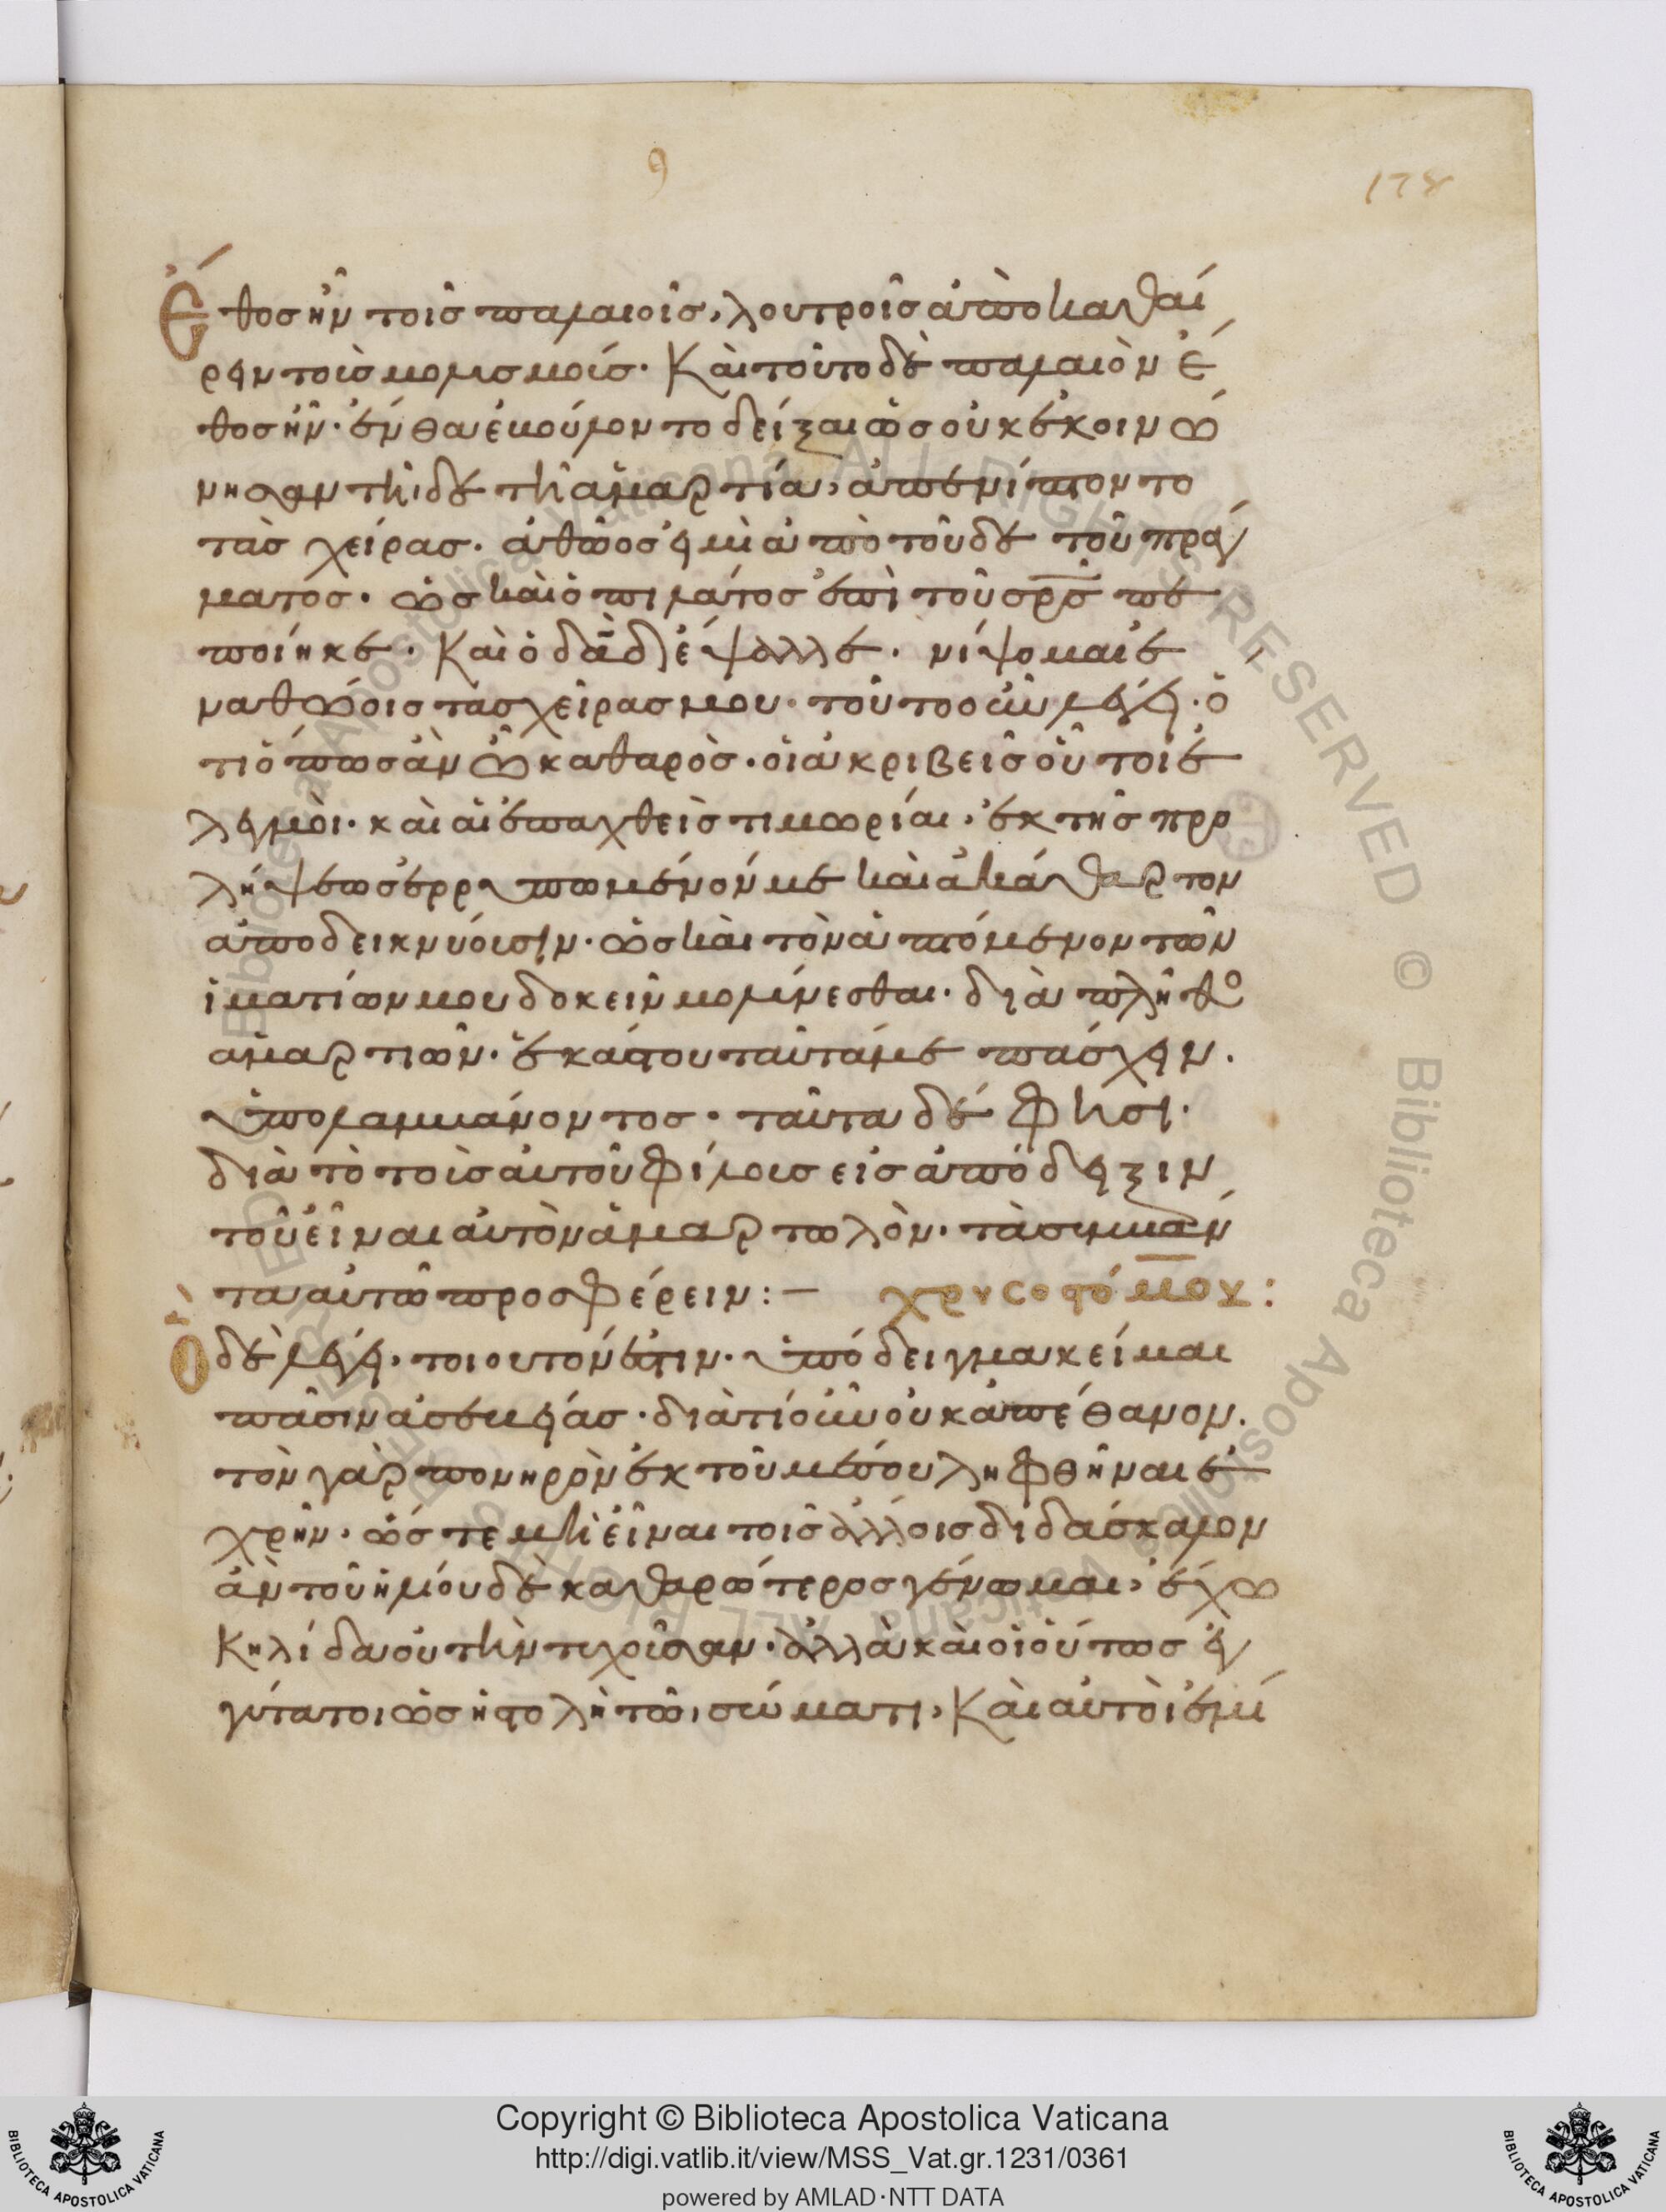 178
Ἔθος ἦν τοῖς παλαιοῖς, λουτροῖς ἀποκαθαί
ρειν τοὺς μολυσμούς. Καὶ τοῦτο δὲ παλαιὸν ἔ
θος ἦν. ἔνθα ἐβούλοντο δεῖξαι ὡς οὐκ ἐκοινώ
νησαν τῆιδε τῆ ἁμαρτία, ἀπενίπτοντο
τὰς χεῖρας. ἀθῶος εἰμὶ ἀπὸ τοῦδε τοῦ πράγ
ματος. ὡς καὶ ὁ πιλάτος ἐπὶ τοῦ σρς πε
ποίηκε. Καὶ ὁ δαδ ἔψαλλε. νίψομαι ἐ
ν ἀθώοις τὰς χεῖρας μου. τοῦτο οὖν λέγει. ὅ
τι ὅπως ἂν ὦ καθαρὸς. οἱ ἀκριβεῖς οὗτοι ἔ
λεγμοι. καὶ αἱ ἐπαχθεῖς τιμωρίαι, ἐκ τῆς προ
λήψεως ἐρρυπωμένον με καὶ ἀκάθαρτον
ἀποδεικνύουσιν. ὡς καὶ τὸν ἁπτόμενον τῶν
ἱματίων μου δοκεῖν μολύνεσθαι. διὰ πλῆθο
ἁμαρτιῶν. ἑκάστου ταῦτά με πάσχειν.
ὑπολαμβάνοντος. ταῦτα δέ φησι.
διὰ τὸ τοὺς αὐτοῦ φίλους εἰς ἀπόδειξιν
τοῦ εἶναι αὐτὸν ἁμαρτωλὸν. τὰ συμβάν
τα αὐτῶ προσφέρειν :— χρυσοστόμου :
Ὃ δὲ λέγει, τοιοῦτόν ἐστιν. ὑπόδειγμα κεῖμαι
πᾶσιν ἀσεβείας. διὰ τί οὖν οὐκ ἀπέθανον.
τὸν γὰρ πονηρὸν ἐκ τοῦ μέσου ληφθῆναι ἐ
χρῆν. ὥστε μὴ εἶναι τοῖς ἄλλοις διδάσκαλον
ἂν τοῦ ἡλίου δὲ καθαρώτερος γένωμαι, ἔχω
Κηλίδα οὐ τὴν τυχοῦσαν. ἀλλὰ καὶ οἱ οὕτως ἐγ
γύτατοι ὡς ἡ στολὴ τῶι σώματι, Καὶ αὐτοὶ ἐμί
Copyright © Biblioteca Apostolica Vaticana
http://digi.vatlib.it/view/MSS_Vat.gr.1231/0361
powered by AMLAD·NTT DATA